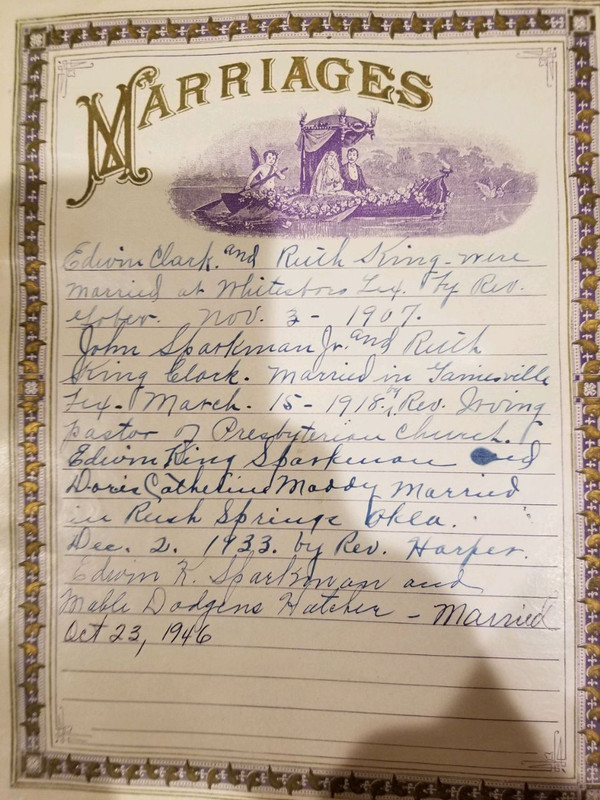 MARRIAGES
Edwin Clark. and Ruth King - were
married at Whitesboro Tex. by Rev.
Nov. 3 - 1907.
John Sparkman Jr. and Ruth
King Clark. Married in Gainesville
Tex - March. 15 - 1918. Rev. Irving
pastor of Presbyterian Church.
Edwin King Sparkman and
Doris Catherine Moddy Married
in Rush Springs Okla.
Dec. 2. 1933. by Rev. Harper.
Edwin K. Sparkman and
Mable Dodgens Hatcher - Married
Oct 23, 1946